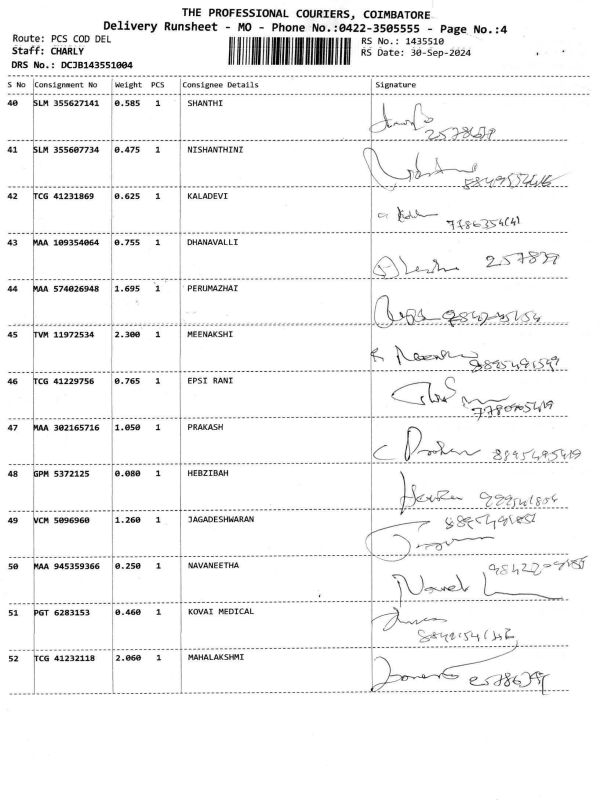 THE PROFESSIONAL COURIERS, COIMBATORE
Delivery Runsheet - MO - Phone No.:0422-3505555 - Page No.:4
Route: PCS COD DEL RS No.: 1435510
Staff: CHARLY RS Date: 30-Sep-2024
DRS No.: DCJB143551004
S No Consignment No Weight PCS Consignee Details Signature
40 SLM 355627141 0.585 1 SHANTHI
41 SLM 355607734 0.475 1 NISHANTHINI
42 TCG 41231869 0.625 1 KALADEVI
43 MAA 109354064 0.755 1 DHANAVALLI
44 MAA 574026948 1.695 1 PERUMAZHAI
45 TVM 11972534 2.300 1 MEENAKSHI
46 TCG 41229756 0.765 1 EPSI RANI
47 MAA 302165716 1.050 1 PRAKASH
48 GPM 5372125 0.080 1 HEBZIBAH
49 VCM 5096960 1.260 1 JAGADESHWARAN
50 MAA 945359366 0.250 1 NAVANEETHA
51 PGT 6283153 0.460 1 KOVAI MEDICAL
52 TCG 41232118 2.060 1 MAHALAKSHMI